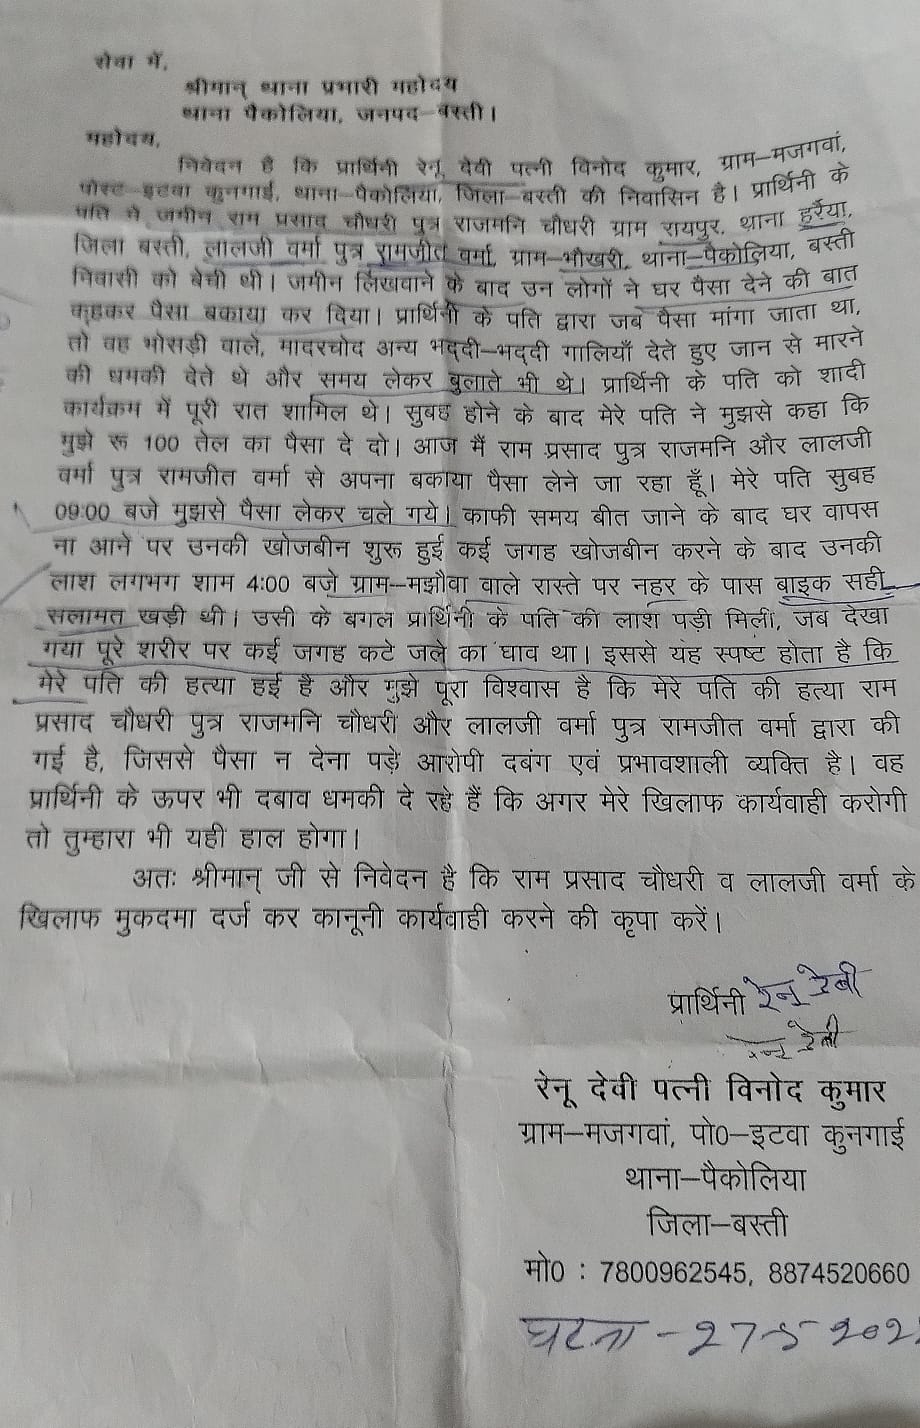 सेवा में,
श्रीमान् थाना प्रभारी महोदय
थाना पैकोलिया, जनपद–बस्ती।
महोदय,
निवेदन है कि प्रार्थिनी रेनू देवी पत्नी विनोद कुमार, ग्राम–मजगवां,
पोस्ट–इटवा कुनगाई, थाना–पैकोलिया, जिला–बस्ती की निवासिन है। प्रार्थिनी के
पति ने जमीन राम प्रसाद चौधरी पुत्र राजमनि चौधरी ग्राम रायपुर, थाना हर्रैया,
जिला बस्ती, लालजी वर्मा पुत्र रामजीत वर्मा, ग्राम–भौखरी, थाना–पैकोलिया, बस्ती
निवासी को बेची थी। जमीन लिखवाने के बाद उन लोगों ने घर पैसा देने की बात
कहकर पैसा बकाया कर दिया। प्रार्थिनी के पति द्वारा जब पैसा मांगा जाता था,
तो वह भोसड़ी वाले, मादरचोद अन्य भद्दी–भद्दी गालियाँ देते हुए जान से मारने
की धमकी देते थे और समय लेकर बुलाते भी थे। प्रार्थिनी के पति को शादी
कार्यक्रम में पूरी रात शामिल थे। सुबह होने के बाद मेरे पति ने मुझसे कहा कि
मुझे रू 100 तेल का पैसा दे दो। आज मैं राम प्रसाद पुत्र राजमनि और लालजी
वर्मा पुत्र रामजीत वर्मा से अपना बकाया पैसा लेने जा रहा हूँ। मेरे पति सुबह
09:00 बजे मुझसे पैसा लेकर चले गये। काफी समय बीत जाने के बाद घर वापस
ना आने पर उनकी खोजबीन शुरू हुई कई जगह खोजबीन करने के बाद उनकी
लाश लगभग शाम 4:00 बजे ग्राम–मझौवा वाले रास्ते पर नहर के पास बाइक सही
सलामत खड़ी थी। उसी के बगल प्रार्थिनी के पति की लाश पड़ी मिली, जब देखा
गया पूरे शरीर पर कई जगह कटे जले का घाव था। इससे यह स्पष्ट होता है कि
मेरे पति की हत्या हुई है और मुझे पूरा विश्वास है कि मेरे पति की हत्या राम
प्रसाद चौधरी पुत्र राजमनि चौधरी और लालजी वर्मा पुत्र रामजीत वर्मा द्वारा की
गई है, जिससे पैसा न देना पड़े आरोपी दबंग एवं प्रभावशाली व्यक्ति है। वह
प्रार्थिनी के ऊपर भी दबाव धमकी दे रहे हैं कि अगर मेरे खिलाफ कार्यवाही करोगी
तो तुम्हारा भी यही हाल होगा।
अतः श्रीमान् जी से निवेदन है कि राम प्रसाद चौधरी व लालजी वर्मा के
खिलाफ मुकदमा दर्ज कर कानूनी कार्यवाही करने की कृपा करें।
प्रार्थिनी रेनु देवी
रेनु देवी
रेनू देवी पत्नी विनोद कुमार
ग्राम–मजगवां, पो0–इटवा कुनगाई
थाना–पैकोलिया
जिला–बस्ती
मो0 : 7800962545, 8874520660
घटना - 27-5